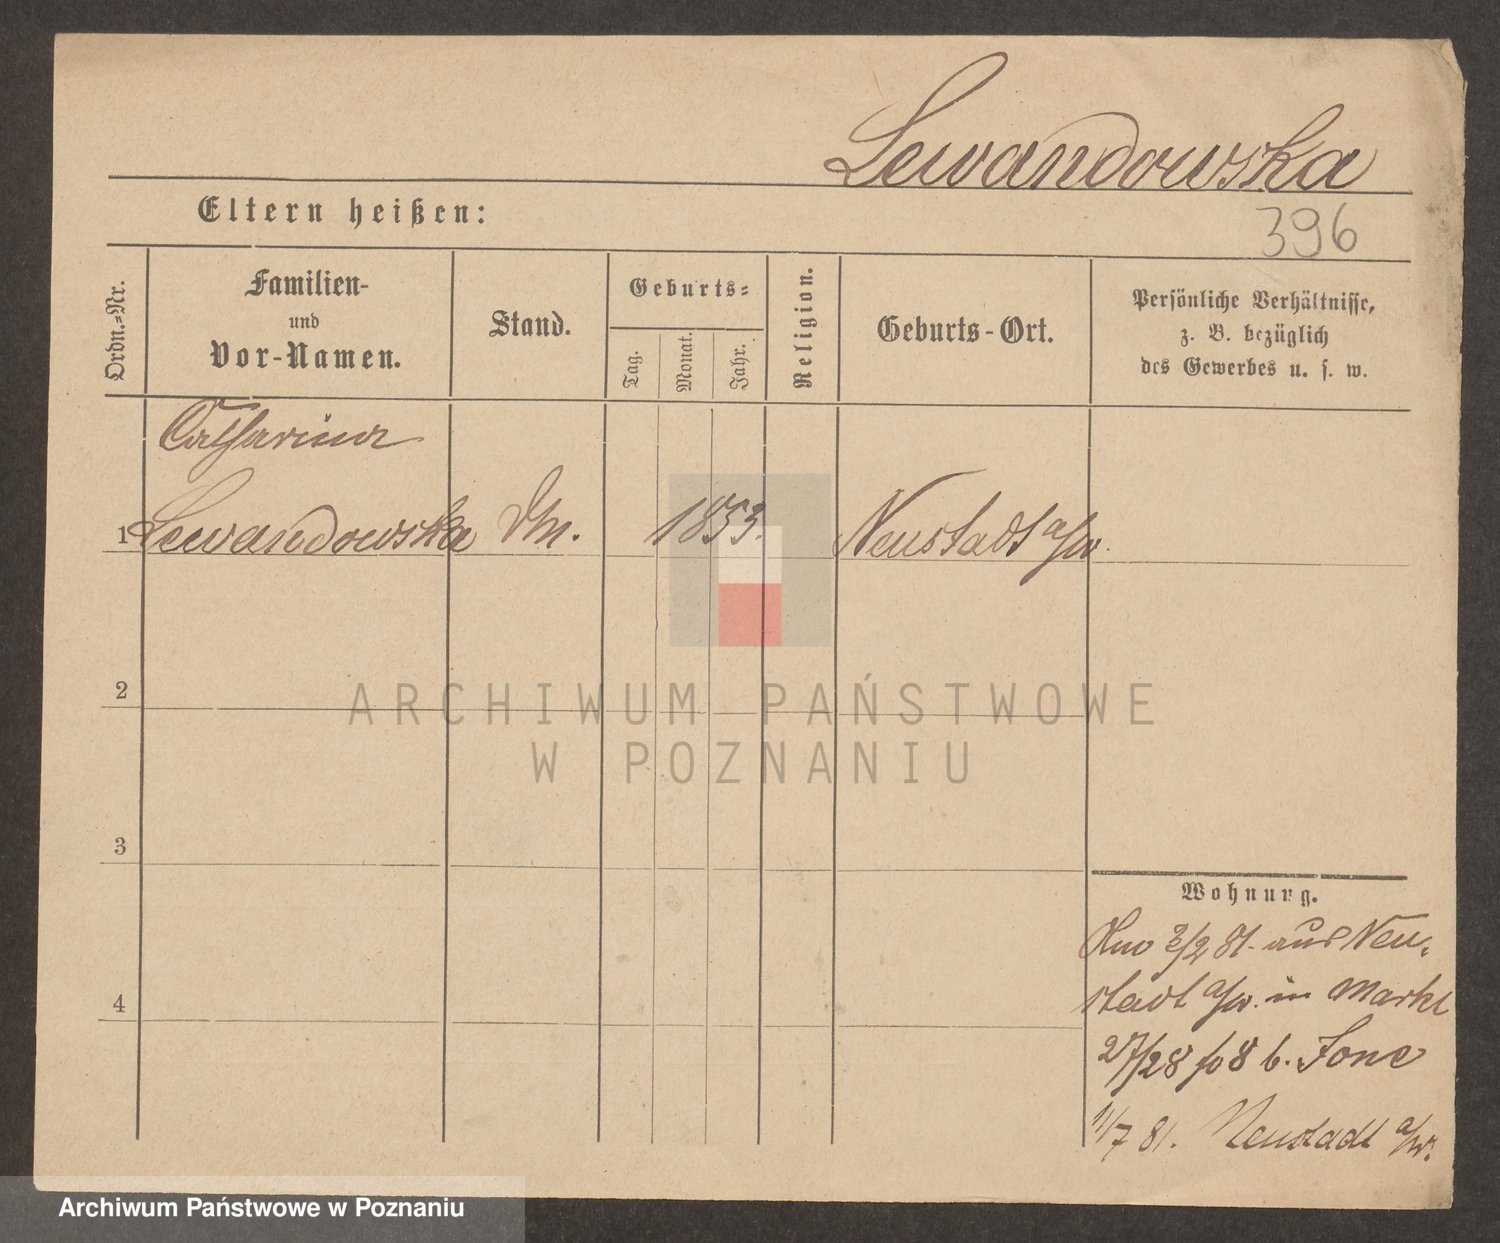 Lewandowska
Eltern heißen:
396
Ordn.-Nr.
Familien-
und
Vor-Namen.
Stand.
Geburts-
Tag.
Monat.
Jahr.
Religion.
Geburts-Ort.
Persönliche Verhältnisse,
z. B. bezüglich
des Gewerbes u. s. w.
Catharina
1 Lewandowska 1853. Neustadt a/w.
2
ARCHIWUM PAŃSTWOWE
W POZNANIU
3
Wohnung.
2/2 81. aus Neu-
stadt a/w. in Markt
4
27/28 fo 8 b.
11/7 81. Neustadt a/w.
Archiwum Państwowe w Poznaniu